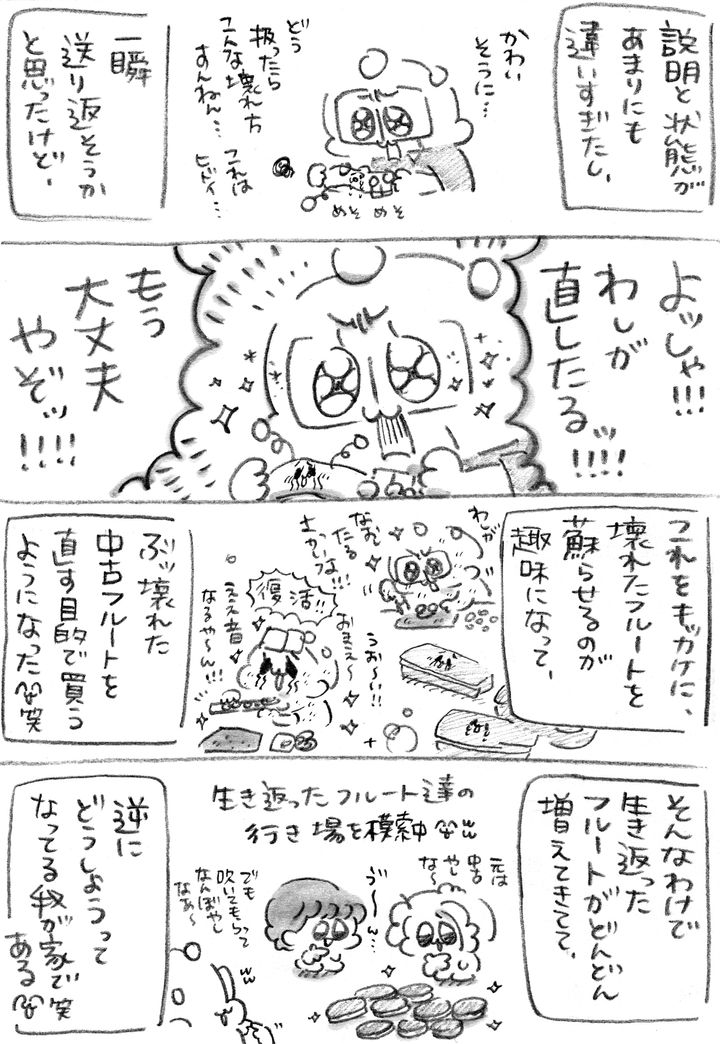 説明と状態が
あまりにも
違いすぎたし、
かわい
そうに…
どう
扱ったら
こんな壊れ方
すんねん…
これは
ヒドイ…
めそ めそ
一瞬
送り返そうか
と思ったけど、
よッしゃ!!!
わしが
直したるッ!!!!
もう
大丈夫
やぞッ!!!!
これをキッカケに、
壊れたフルートを
蘇らせるのが
趣味になって、
わしが
なお
したる
うお〜い!!
おまえ〜
復活!!
ええ音
なるや〜ん!!!
ぶッ壊れた
中古フルートを
直す目的で買う
ようになった笑
そんなわけで
生き返った
フルートがどんどん
増えてきてて、
生き返ったフルート達の
行き場を模索中
元は
中古
やし
な〜
ゔ〜〜ん…
でも
吹いてもらって
なんぼやし
なぁ〜
逆に
どうしようって
なってる我が家で笑
ある